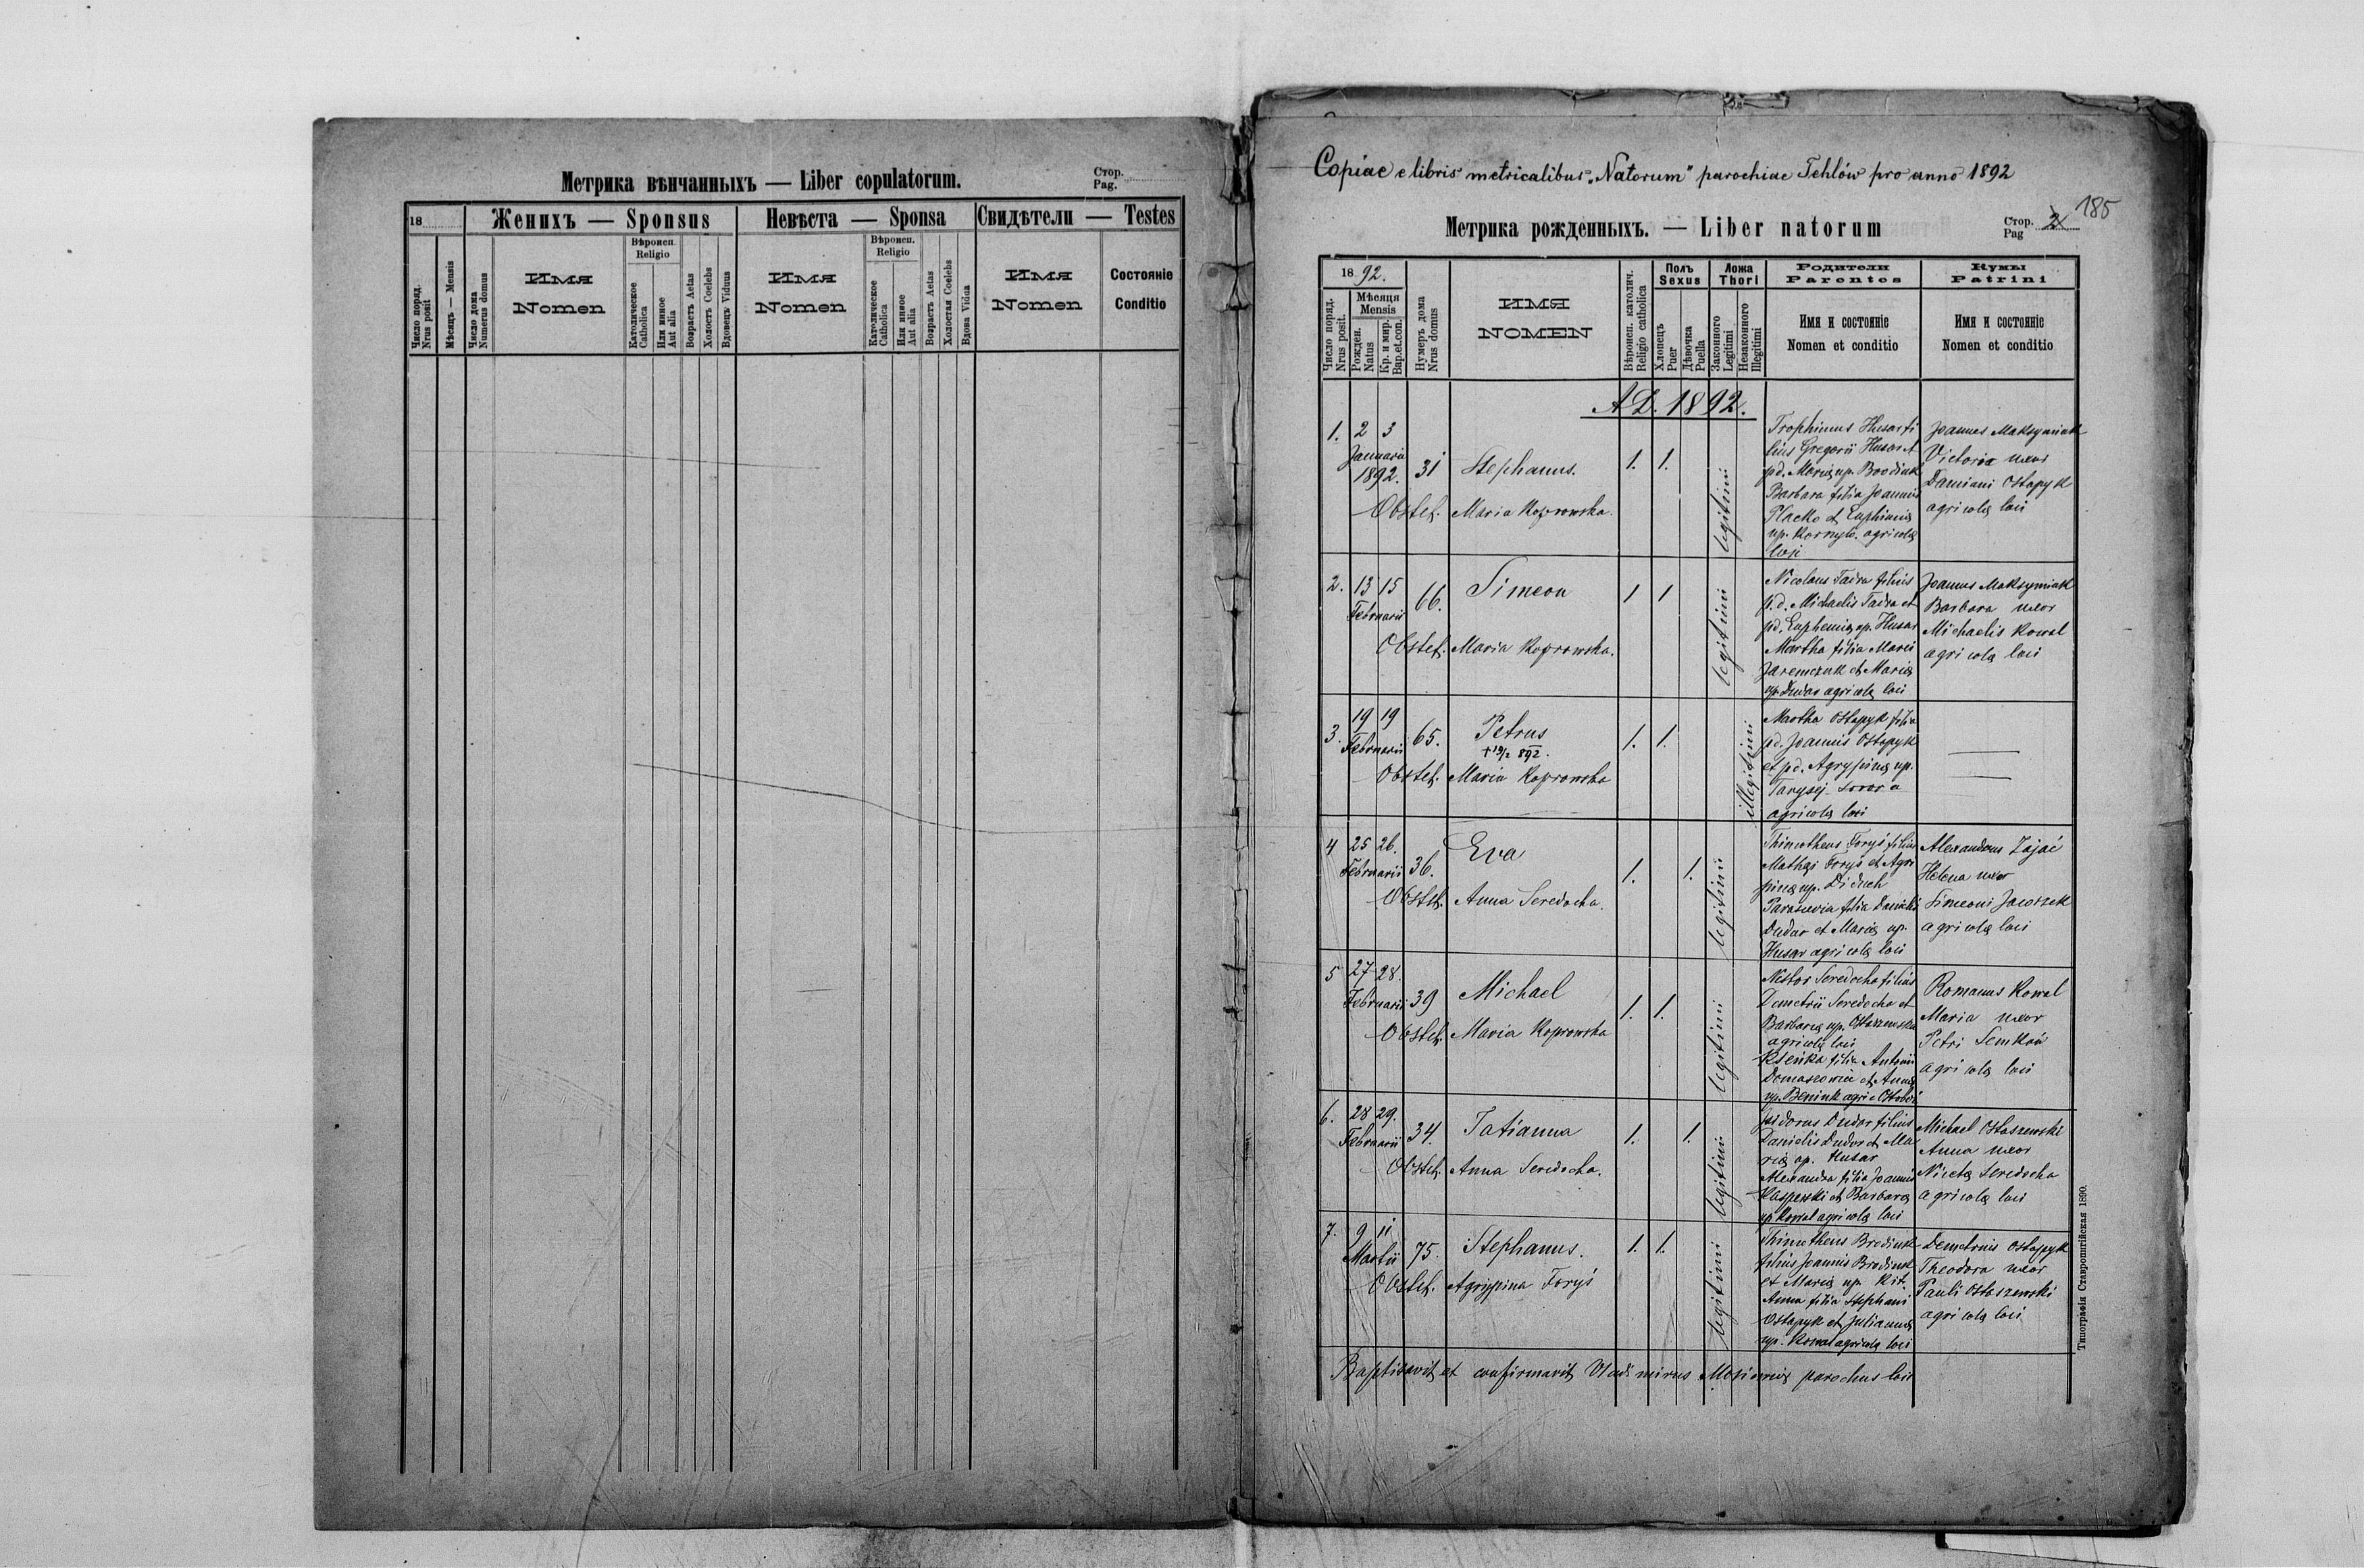 Метрика вѣнчанныхъ — Liber copulatorum.
Стор.
Pag.
18
Женихъ — Sponsus
Невѣста — Sponsa
Свидѣтели — Testes
Число поряд.
Nrus posit
Мѣсяцъ — Mensis
Число дома
Numerus domus
Имя
Nomen
Вѣроисп.
Religio
Католическое
Catholica
Или инное
Aut alia
Возрастъ Aetas
Холостъ Coelebs
Вдовецъ Viduus
Имя
Nomen
Вѣроисп.
Religio
Католическое
Catholica
Или инное
Aut alia
Возрастъ Aetas
Холостая Coelebs
Вдова Vidua
Имя
Nomen
Состояніе
Conditio
Copiae e libris metricalibus „Natorum" parochiae Tehlów pro anno 1892
185
Метрика рожденныхъ. — Liber natorum
Стор.
Pag
2
1892.
Число поряд.
Nrus posit.
Мѣсяця
Mensis
Рожден.
Natus
Кр. и мир.
Bap.et.con.
Нумеръ дома
Nrus domus
ИМЯ
NOMEN
Вѣроисп. католич.
Religio catholica
Полъ
Sexus
Хлопецъ
Puer
Дѣвочка
Puella
Ложа
Thori
Законного
Legitimi
Незаконного
Illegitimi
Родители
Parentes
Имя и состояніе
Nomen et conditio
Кумы
Patrini
Имя и состояніе
Nomen et conditio
A.D. 1892.
1. 2 3
Januarii
1892. 31 Stephanus. 1. 1.
Obstet. Maria Koprowska.
legitimi
Trophimus Husar fi
lius Gregorii Husar et
pd. Mariæ up. Brodiuk
Barbara filia Joannis
Placko et Euphimiæ
up. Kornylo. agricolæ
loci
Joannes Maksymiuk
Victoria uxor
Damiani Ostapyk
agricolæ loci
2. 13 15
Februarii 66. Simeon 1 1
Obstet. Maria Koprowska.
legitimi
Nicolaus Tadra filius
p.d. Michaelis Tadra et
pd. Euphemiæ up. Husar
Martha filia Marci
Jaremczuk et Mariæ
up. Dudar agricolæ loci
Joannes Maksymiuk
Barbara uxor
Michaelis Kowal
agricolæ loci
3. 19 19
Februarii 65. Petrus 1. 1.
+ 19/2 892.
Obstet. Maria Koprowska
illegitimi
Martha Ostapyk filia
pd. Joannis Ostapyk
et pd. Agrypinæ up.
agricolæ loci
4 25 26.
Februarii 36. Eva 1. 1.
Obstet. Anna Seredocha.
legitimi
Thimotheus Foryś filius
Mathæi Foryś et Agri
pinæ up. Diduch
Parascevia filia Danielis
Dudar et Mariæ up.
Husar agricolæ loci
Alexandrus Zając
Helena uxor
Simeoni Jaworek
agricolæ loci
5 27 28.
Februarii 39 Michael 1. 1.
Obstet. Maria Koprowska
legitimi
Nestor Seredocha filius
Demetrii Seredocha et
Barbaræ up. Ostaszewska
agricolæ loci
Kseńka filia Antonii
et Annæ
Romanus Kowal
Maria uxor
Petri Semków
agricolæ loci
6. 28 29.
Februarii 34. Tatianna 1. 1.
Obstet. Anna Seredocha.
legitimi
Isidorus Dudar filius
Danielis Dudar et Ma
riæ up. Husar
Alexandra filia Joannis
Kasperski et Barbaræ
up. Kowal agricolæ loci
Michael Ostaszewski
Anna uxor
Nicetæ Seredocha
agricolæ loci
7. 9 11
Martii 75. Stephanus. 1. 1.
Obstet. Agrypina Foryś
legitimi
Thimotheus Brodiuk
filius Joannis Brodiuk
et Mariæ up. Kit.
Anna filia Stephani
Ostapyk et Juliannæ
up. Kowal agricolæ loci
Demetrius Ostapyk
Theodora uxor
Pauli Ostaszewski
agricolæ loci
Baptisavit et confirmavit Vladimirus parochus loci
Типографія Ставропигійская 1890.